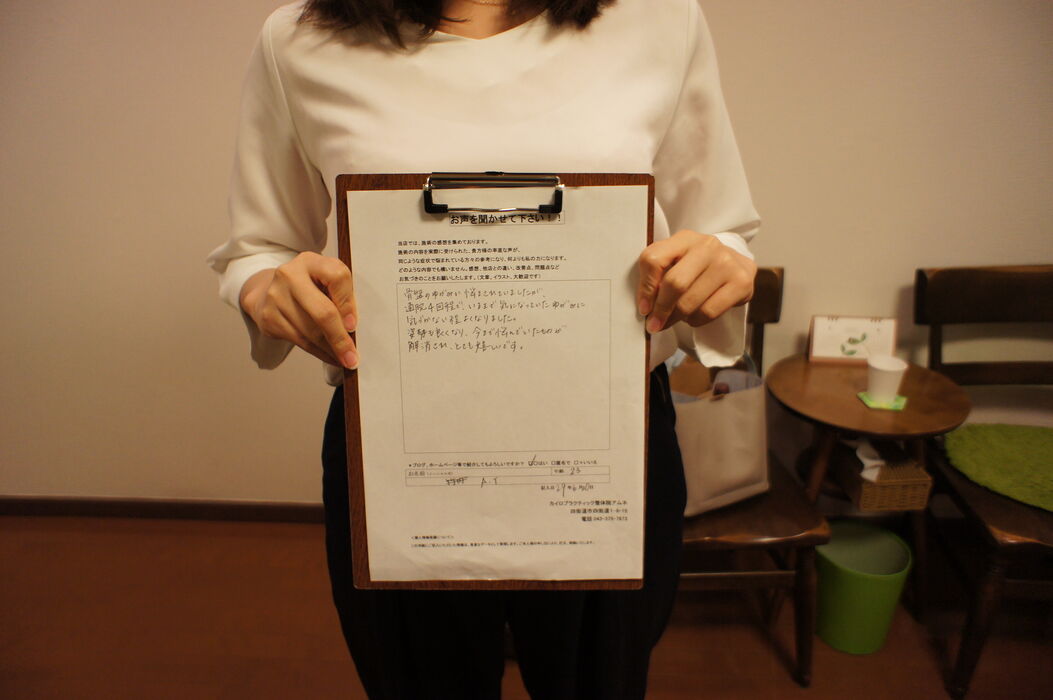 お声を聞かせて下さい！！
当店では、施術の感想を集めております。
施術の内容を実際に受けられた、貴方様の率直な声が、
同じような症状で悩まされている方々の参考になり、何よりも私の力になります。
どのような内容でも構いません。感想、他店との違い、改善点、問題点など
お気づきのことをお願いします。（文章、イラスト、大歓迎です）
骨盤のゆがみに悩まされていましたが、
通院4回程で、いままで気になっていたゆがみに
気づかない程よくなりました。
姿勢も良くなり、今まで悩んでいたものが
解消され、とても嬉しいです。
★ブログ、ホームページ等で紹介してもよろしいですか？ はい □匿名で □いいえ
お名前 年齢 23
A.Y
記入日 29年6月10日
カイロプラクティック整体院アムネ
四街道市四街道1-8-15